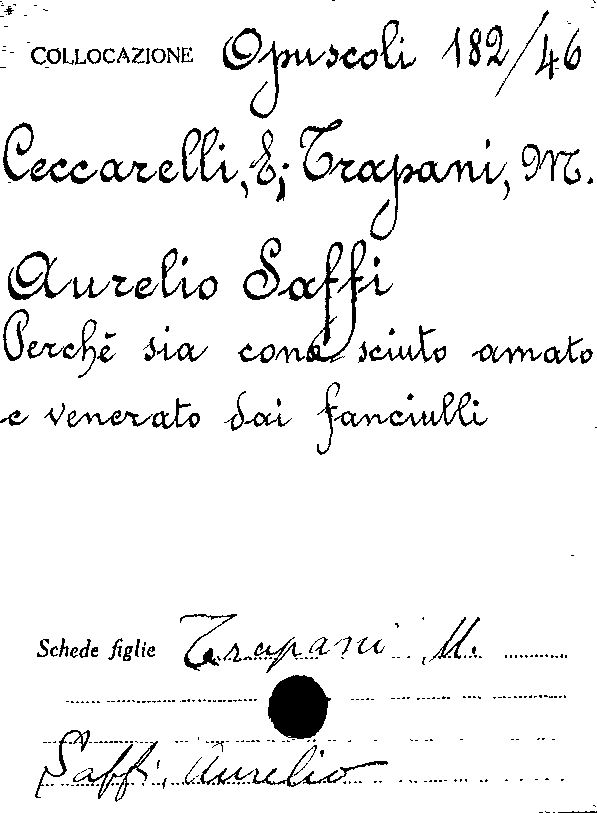 COLLOCAZIONE Opuscoli 182/46
Ceccarelli, E; Trapani, M.
Aurelio Saffi
Perchè sia cono sciuto amato
e venerato dai fanciulli
Schede figlie Trapani M.
Saffi, Aurelio